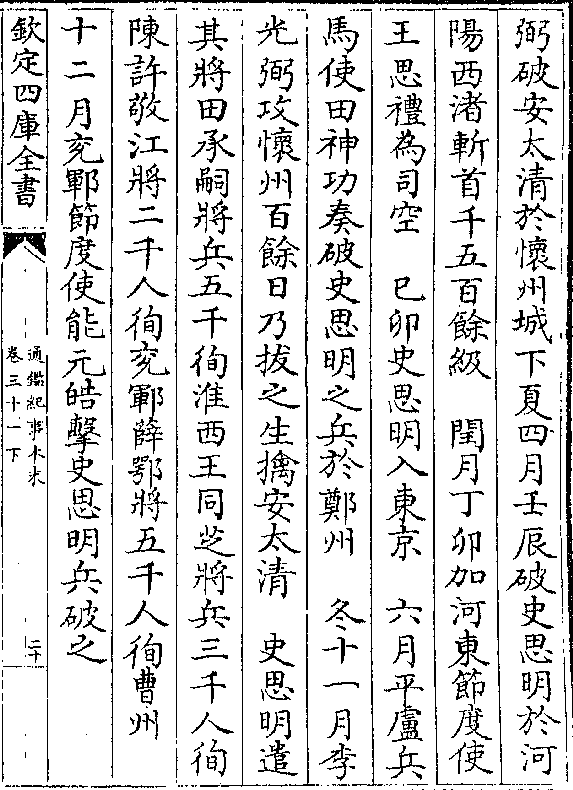 弼破安太清於懷州城下夏四月壬辰破史思明於河
陽西渚斬首千五百餘級　閏月丁卯加河東節度使
王思禮為司空　己卯史思明入東京　六月平盧兵
馬使田神功奏破史思明之兵於鄭州　冬十一月李
光弼攻懷州百餘日乃拔之生擒安太清　史思明遣
其將田承嗣將兵五千徇淮西王同芝將兵三千人徇
陳許敬江將二千人徇兖鄆薛鄂將五千人徇曹州
十二月兖鄆節度使能元皓擊史思明兵破之
欽定四庫全書
通鑑紀事本末
卷三十一下
二十